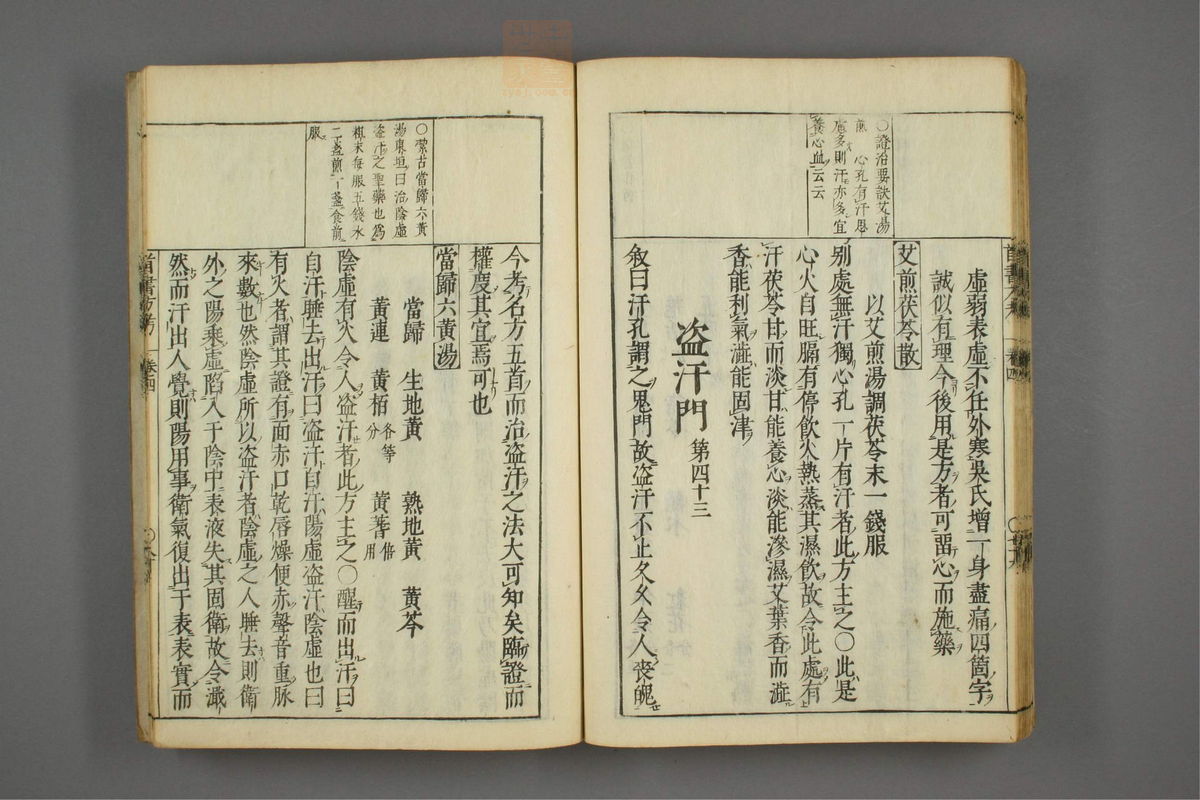 〇證治要訣艾湯
煎 心孔有汗思
慮多則汗亦多宜
養心血云云
虛弱表虛不任外寒吳氏增一身盡痛四箇字
誠似有理今後用是方者可畱心而施藥
艾煎茯苓散
以艾煎湯調茯苓末一錢服
别處無汗獨心孔一片有汗者此方主之〇此是
心火自旺膈有停飲火熱蒸其濕飲故令此處有
汗茯苓甘而淡甘能養心淡能滲濕艾葉香而澁
香能利氣澁能固津
盗汗門 第四十三
叙曰汗孔謂之鬼門故盗汗不止久久令人喪魄
今考名方五首而治盗汗之法大可知矣臨證而
權度其宜焉可也
〇蒙古當歸六黃
湯東垣曰治陰虛
盗汗之聖藥也爲
粗末每服五錢水
二盞煎一盞食前
服
當歸六黃湯
當歸 生地黃 熟地黃 黃芩
黃連 黃栢各等分 黃芪倍用
陰虛有火令人盗汗者此方主之〇醒而出汗曰
自汗睡去出汗曰盗汗自汗陽虛盗汗陰虛也曰
有火者謂其證有面赤口乾唇燥便赤聲音重脉
來數也然陰虛所以盗汗者陰虛之人睡去則衛
外之陽乘虛陷入于陰中表液失其固衛故令濈
然而汗出人覺則陽用事衛氣復出于表表實而